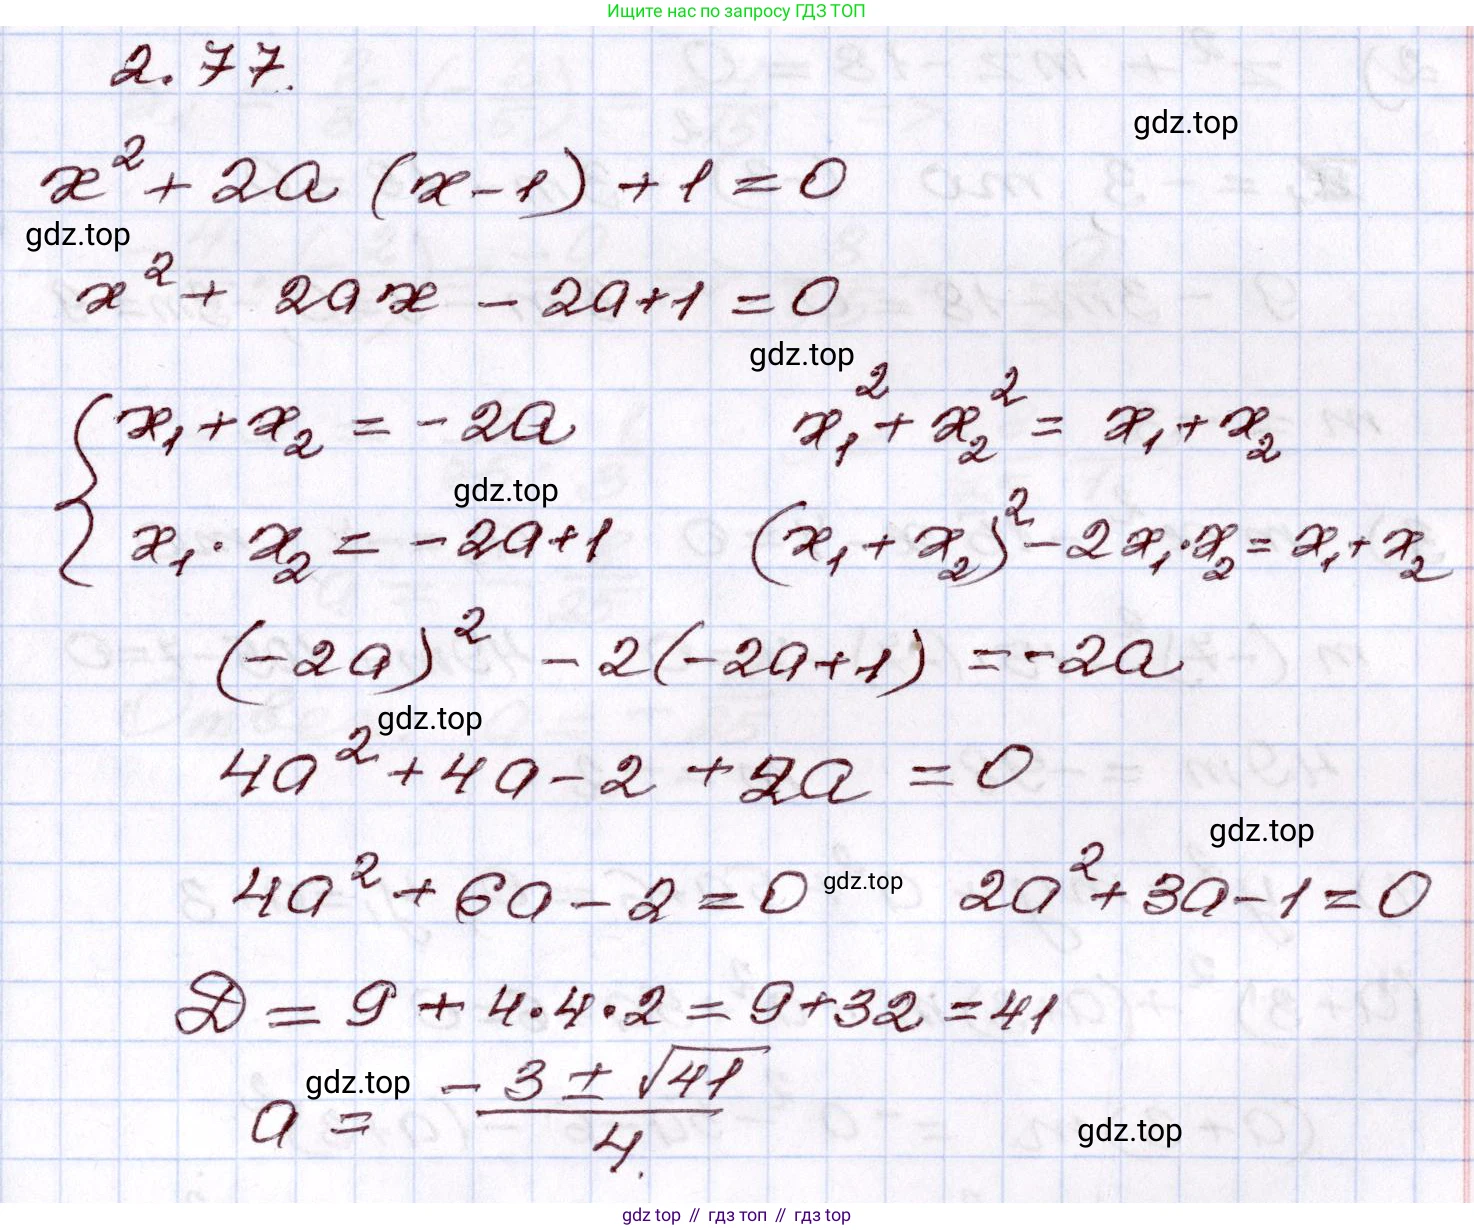 Ищите нас по запросу ГДЗ ТОП
2.77.
gdz.top
x² + 2a (x - 1) + 1 = 0
gdz.top
x² + 2ax - 2a + 1 = 0
gdz.top
{ x₁ + x₂ = -2a     x₁² + x₂² = x₁ + x₂
gdz.top
x₁ · x₂ = -2a + 1     (x₁ + x₂)² - 2x₁·x₂ = x₁ + x₂
(-2a)² - 2(-2a + 1) = -2a
gdz.top
4a² + 4a - 2 + 2a = 0
gdz.top
4a² + 6a - 2 = 0 gdz.top 2a² + 3a - 1 = 0
D = 9 + 4·4·2 = 9 + 32 = 41
gdz.top
a = (-3 ± √41) / 4.
gdz.top
gdz top // гдз топ // gdz top